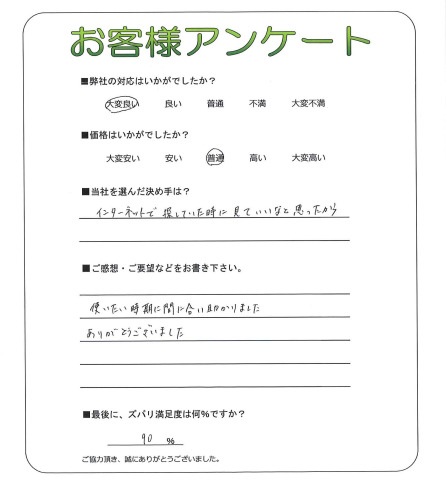 お客様アンケート
■弊社の対応はいかがでしたか？
大変良い 良い 普通 不満 大変不満
■価格はいかがでしたか？
大変安い 安い 普通 高い 大変高い
■当社を選んだ決め手は？
インターネットで探していた時に見ていいなと思ったから
■ご感想・ご要望などをお書き下さい。
使いたい時期に間に合い助かりました
ありがとうございました
■最後に、ズバリ満足度は何%ですか？
90 %
ご協力頂き、誠にありがとうございました。